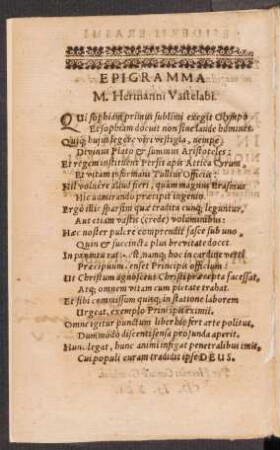 EPIGRAMMA
M. Hermanni Vastelabi.
QUi sophiam primus sublimi exegit Olympo
Et sophiam docuit non sine laude homines.
Quiq; hujus legere viri vestigia, nempe
Divinus Plato & summus Aristoteles:
Et regem instituent Persis apis Attica Cyrum
Et vitam informans Tullius Officiis:
Nil voluere aliud fieri, quam magnus Erasmus
Hic admirando præcipit ingenio.
Ergo illic sparsim quæ tradita cunq; leguntur,
Aut etiam vastis (crede) voluminibus:
Hæc noster pulcre comprendit fasce sub uno
Quin & succincta plus brevitate docet
est, namq; hoc in cardine verti
Præcipuum censet Principis officium:
Ut Christum agnoscat Christi præcepta facessat,
Atq; omnem vitam cum pietate trahat.
Et sibi commissum quinq; in statione laborem
Urgeat, exemplo Principis eximii.
Omne igitur punctum liber hic fert arte politus,
Dummodo discentis sensa profunda aperit.
Hunc legat, hunc animi infigat penetralibus imis,
Cui populi curam tradidit ipse DEUS.